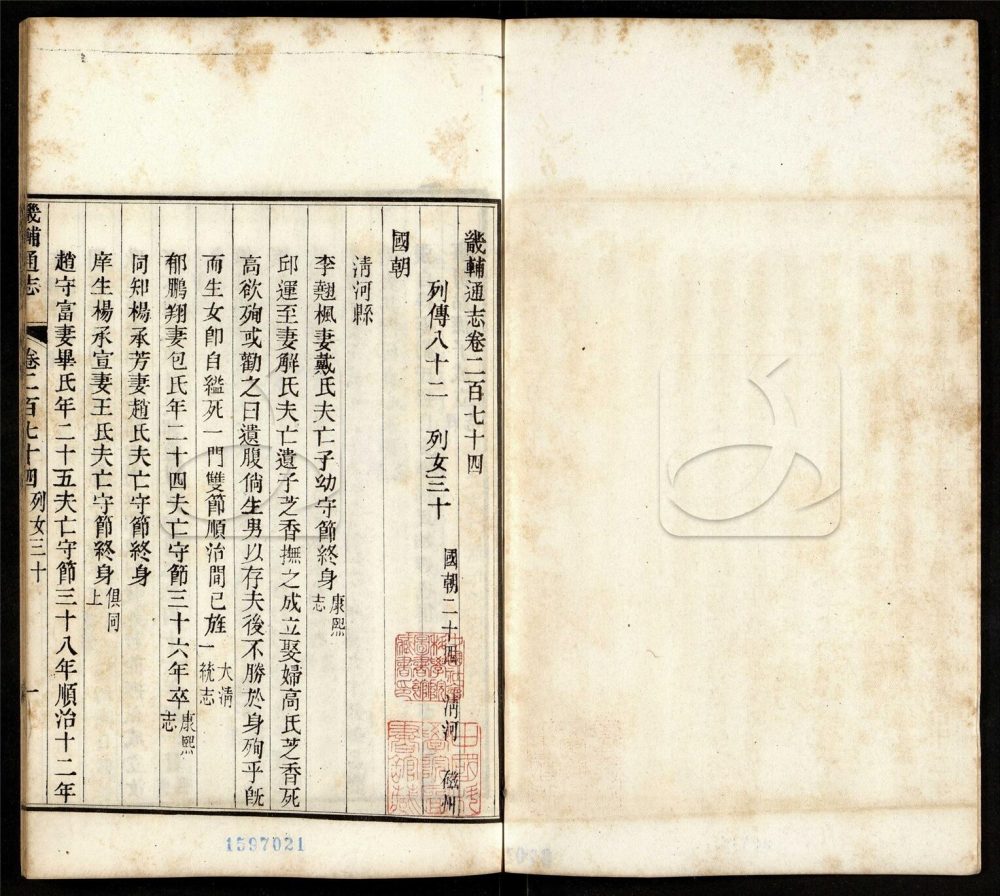 畿輔通志卷二百七十四
列傳八十二　列女三十　國朝二十四　清河　磁州
國朝
清河縣
李翹楓妻戴氏夫亡子幼守節終身康熙志
邱運至妻解氏夫亡遺子芝香撫之成立娶婦高氏芝香死
高欲殉或勸之曰遺腹倘生男以存夫後不勝於身殉乎旣
而生女卽自縊死一門雙節順治間已旌大清一統志
郁鵬翔妻包氏年二十四夫亡守節三十六年卒康熙志
同知楊承芳妻趙氏夫亡守節終身
庠生楊承宣妻王氏夫亡守節終身俱同上
趙守富妻畢氏年二十五夫亡守節三十八年順治十二年
畿輔通志　卷二百七十四　列女三十　一
1597021